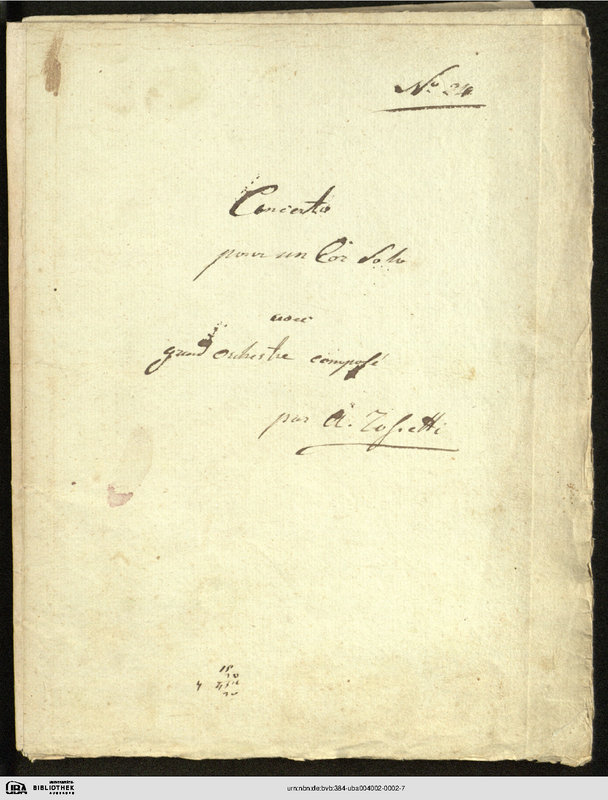 No 24
Concerto
pour un Cor Solo
avec
grand Orchestre composé
par A. Rosetti
15
4
UBA UNIVERSITÄTS
BIBLIOTHEK
AUGSBURG
urn:nbn:de:bvb:384-uba004002-0002-7